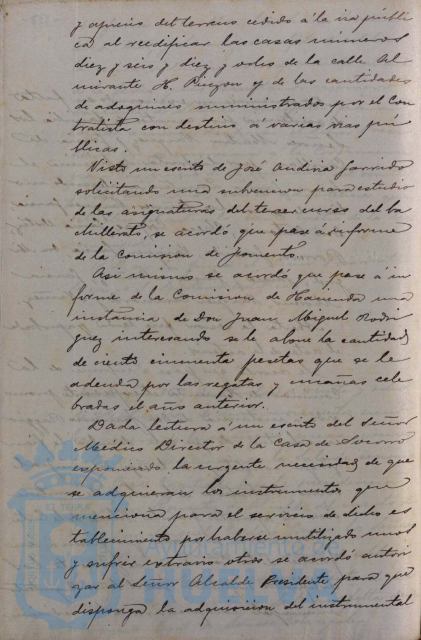 y aprecio del terreno cedido á la via públi
ca al reedificar las casas números
diez y seis y diez y ocho de la calle Al
mirante H. Pinzon y de las cantidades
de adoquines suministrados por el Con
tratista con destino á varias vias pú
blicas.
Visto un escrito de José Andina Garrido
solicitando una subvencion para estudio
de las asignaturas del tercer curso del ba
chillerato, se acordó que pase á informe
de la Comision de Fomento.
Asi mismo se acordó que pase á in
forme de la Comision de Hacienda una
instancia de Don Juan Miguel Rodri
guez interesando se le abone la cantidad
de ciento cincuenta pesetas que se le
adeuda por las regatas y cucañas cele
bradas el año anterior.
Dada lectura á un escrito del Señor
Médico Director de la Casa de Socorro
exponiendo la urgente necesidad de que
se adquieran los instrumentos que
menciona para el servicio de dicho es
tablecimiento por haberse inutilizado unos
y sufrir extravio otros se acordó autori
zar al Señor Alcalde Presidente para que
disponga la adquisicion del instrumental